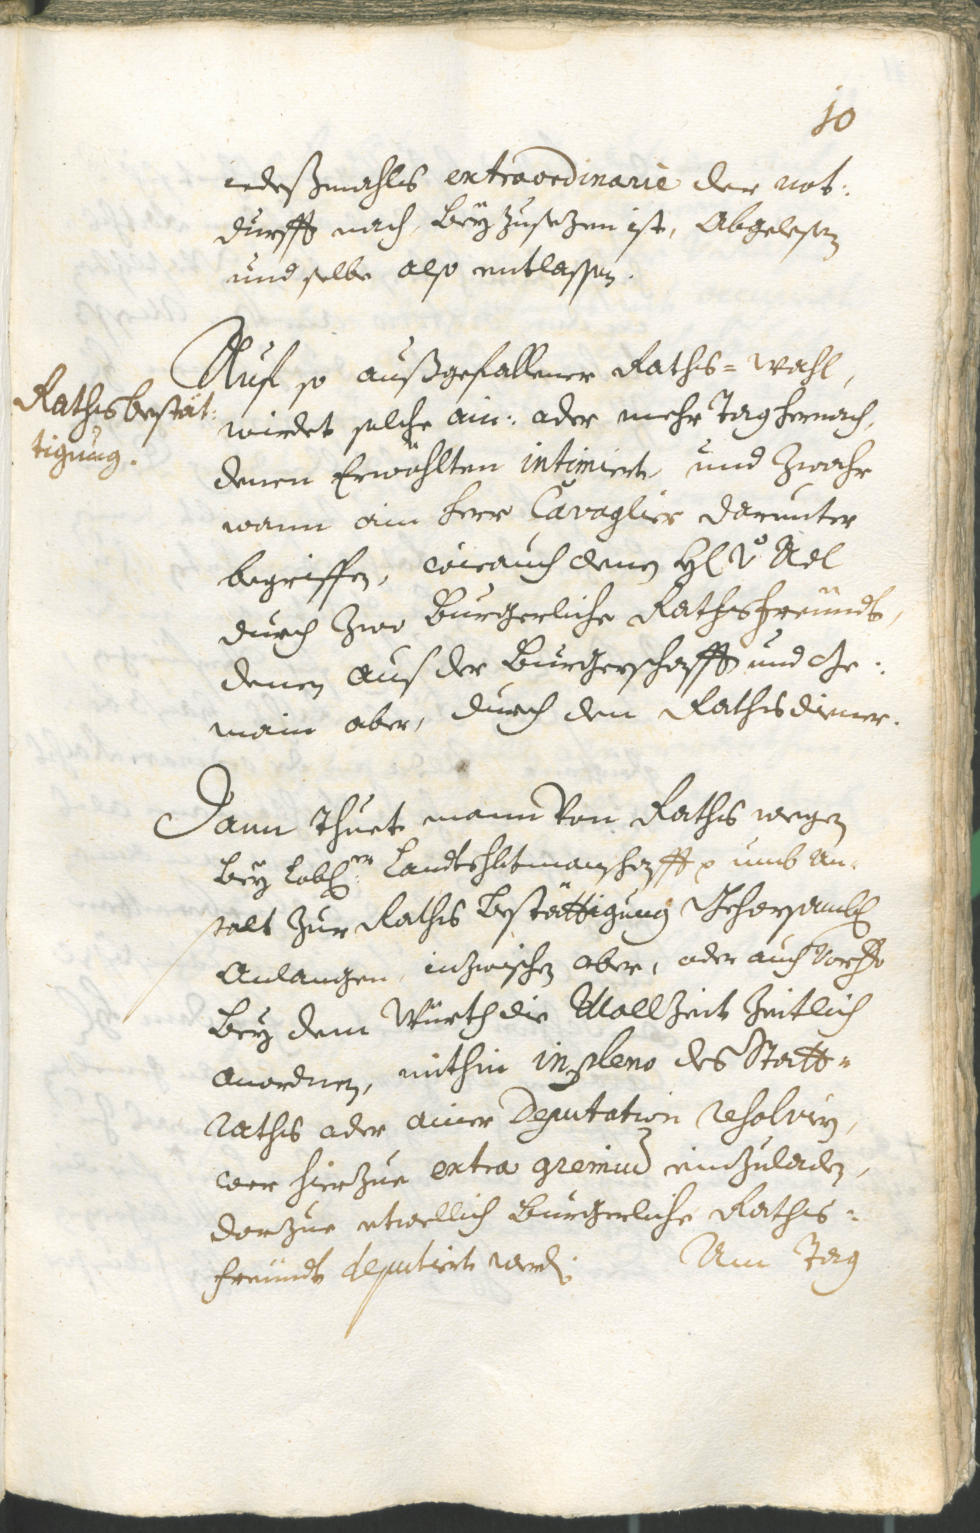 10
iedeßmahls extraordinarie der not:
durfft nach, beÿzusezen ist, Abgelesen
und selbe also entlassen.
Auf so außgefallener Raths=wahl,
Rathsbestät:
tigung.
wirdet solche ain: oder mehr Tag hernach,
denen Erwöhlten intimiert, und zwahr
wann ain Herr Cavaglier darunter
begriffen, wie auch denen H: v: Adl
durch zwo Burgerliche Rathsfreündt,
denen auß der Burgerschafft und Ge:
main aber, durch den Rathsdiener.
Dann thuet mann von Raths wegen
beÿ Lobl:en Landtshbtmanschafft umb An:
stalt zur Raths Bestättigung Gehorsambl
Anlangen, inzwischen aber, oder auch vorhero
beÿ dem Würth die Mallzeit zeitlich
anordnen, mithin in pleno des Statt=
Raths oder ainer Deputation resolvirn,
wer hierzue extra gremium einzuladen,
darzue etwellich Burgerliche Raths=
freündt deputiert werden.
Am Tag